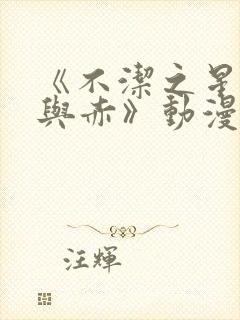 《不潔之星
與赤》動漫
汪輝